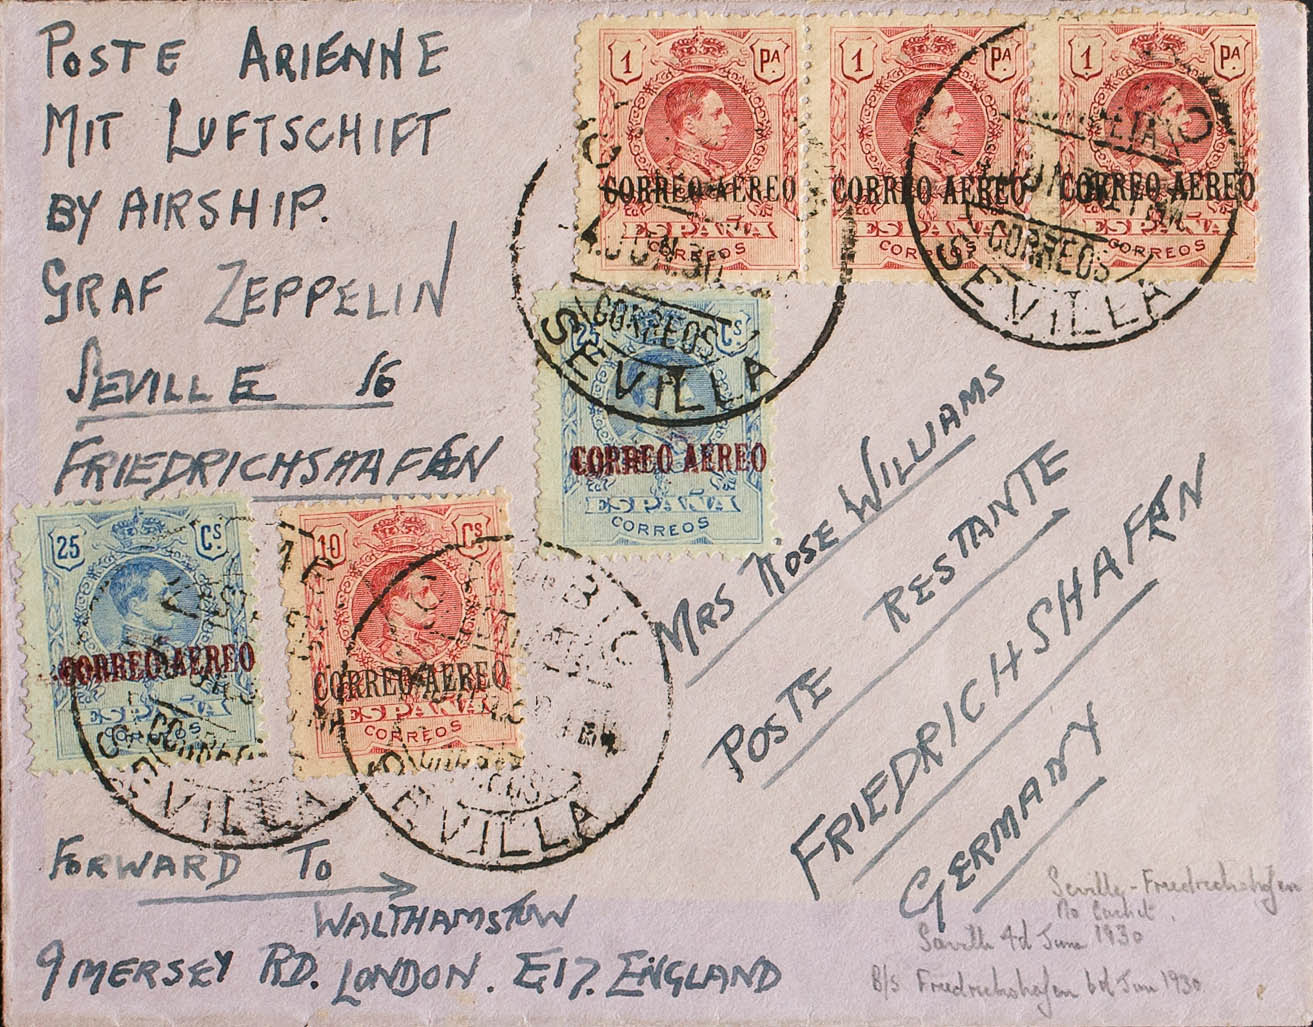 POSTE ARIENNE
MIT LUFTSCHIFT
BY AIRSHIP.
GRAF ZEPPELIN
SEVILLE TO
FRIEDRICHSHAFEN
1 PA
CORREO AEREO
ESPAÑA
CORREOS
1 PA
CORREO AEREO
ESPAÑA
CORREOS
1 PA
CORREO AEREO
ESPAÑA
CORREOS
4.JUN.30
CORREOS
SEVILLA
CORREOS
SEVILLA
25 Cs
CORREO AEREO
ESPAÑA
CORREOS
25 Cs
CORREO AEREO
ESPAÑA
CORREOS
SEVILLA
10 Cs
CORREO AEREO
ESPAÑA
CORREOS
SEVILLA
MRS ROSE WILLIAMS
POSTE RESTANTE
FRIEDRICHSHAFEN
GERMANY
FORWARD TO
WALTHAMSTOW
9 MERSEY RD. LONDON. E17. ENGLAND
Seville - Friedrichshafen
No Cachet.
Seville 4d June 1930
B/S Friedrichshafen 6d Jun 1930